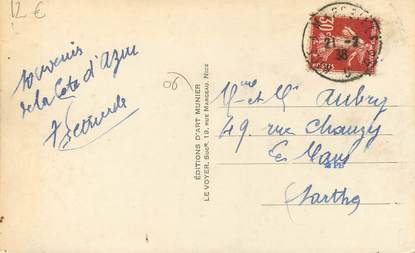 12 €
souvenir
de la Cote d'Azur
06
EDITIONS D'ART MUNIER
LE VOYER, Succr, 19, RUE MARCEAU, NICE
30c
POSTES
21-2
38
Mme et Mr Aubry
49 rue Chanzy
Le Mans
Sarthe